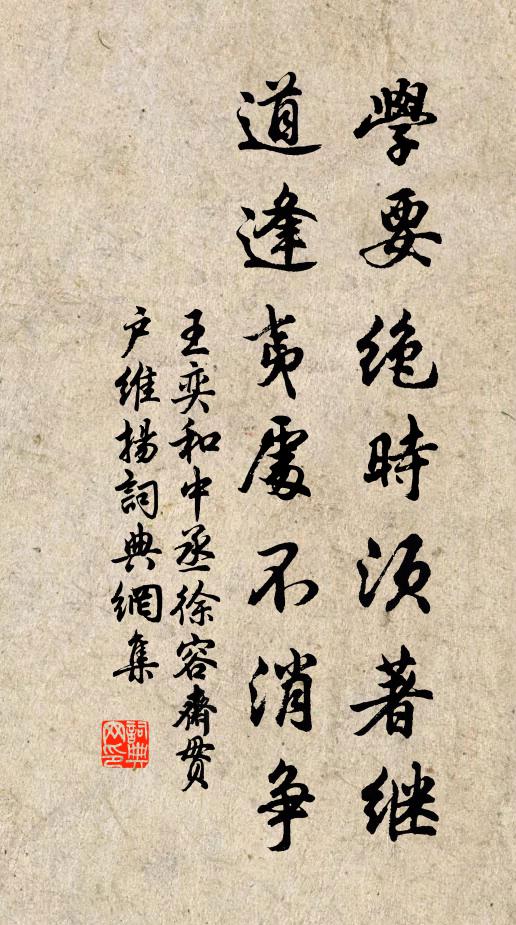 學要絶時須著继
道逢夷處不消争
王奕和中丞徐容齋贯
户維揚詞典網集
詞典